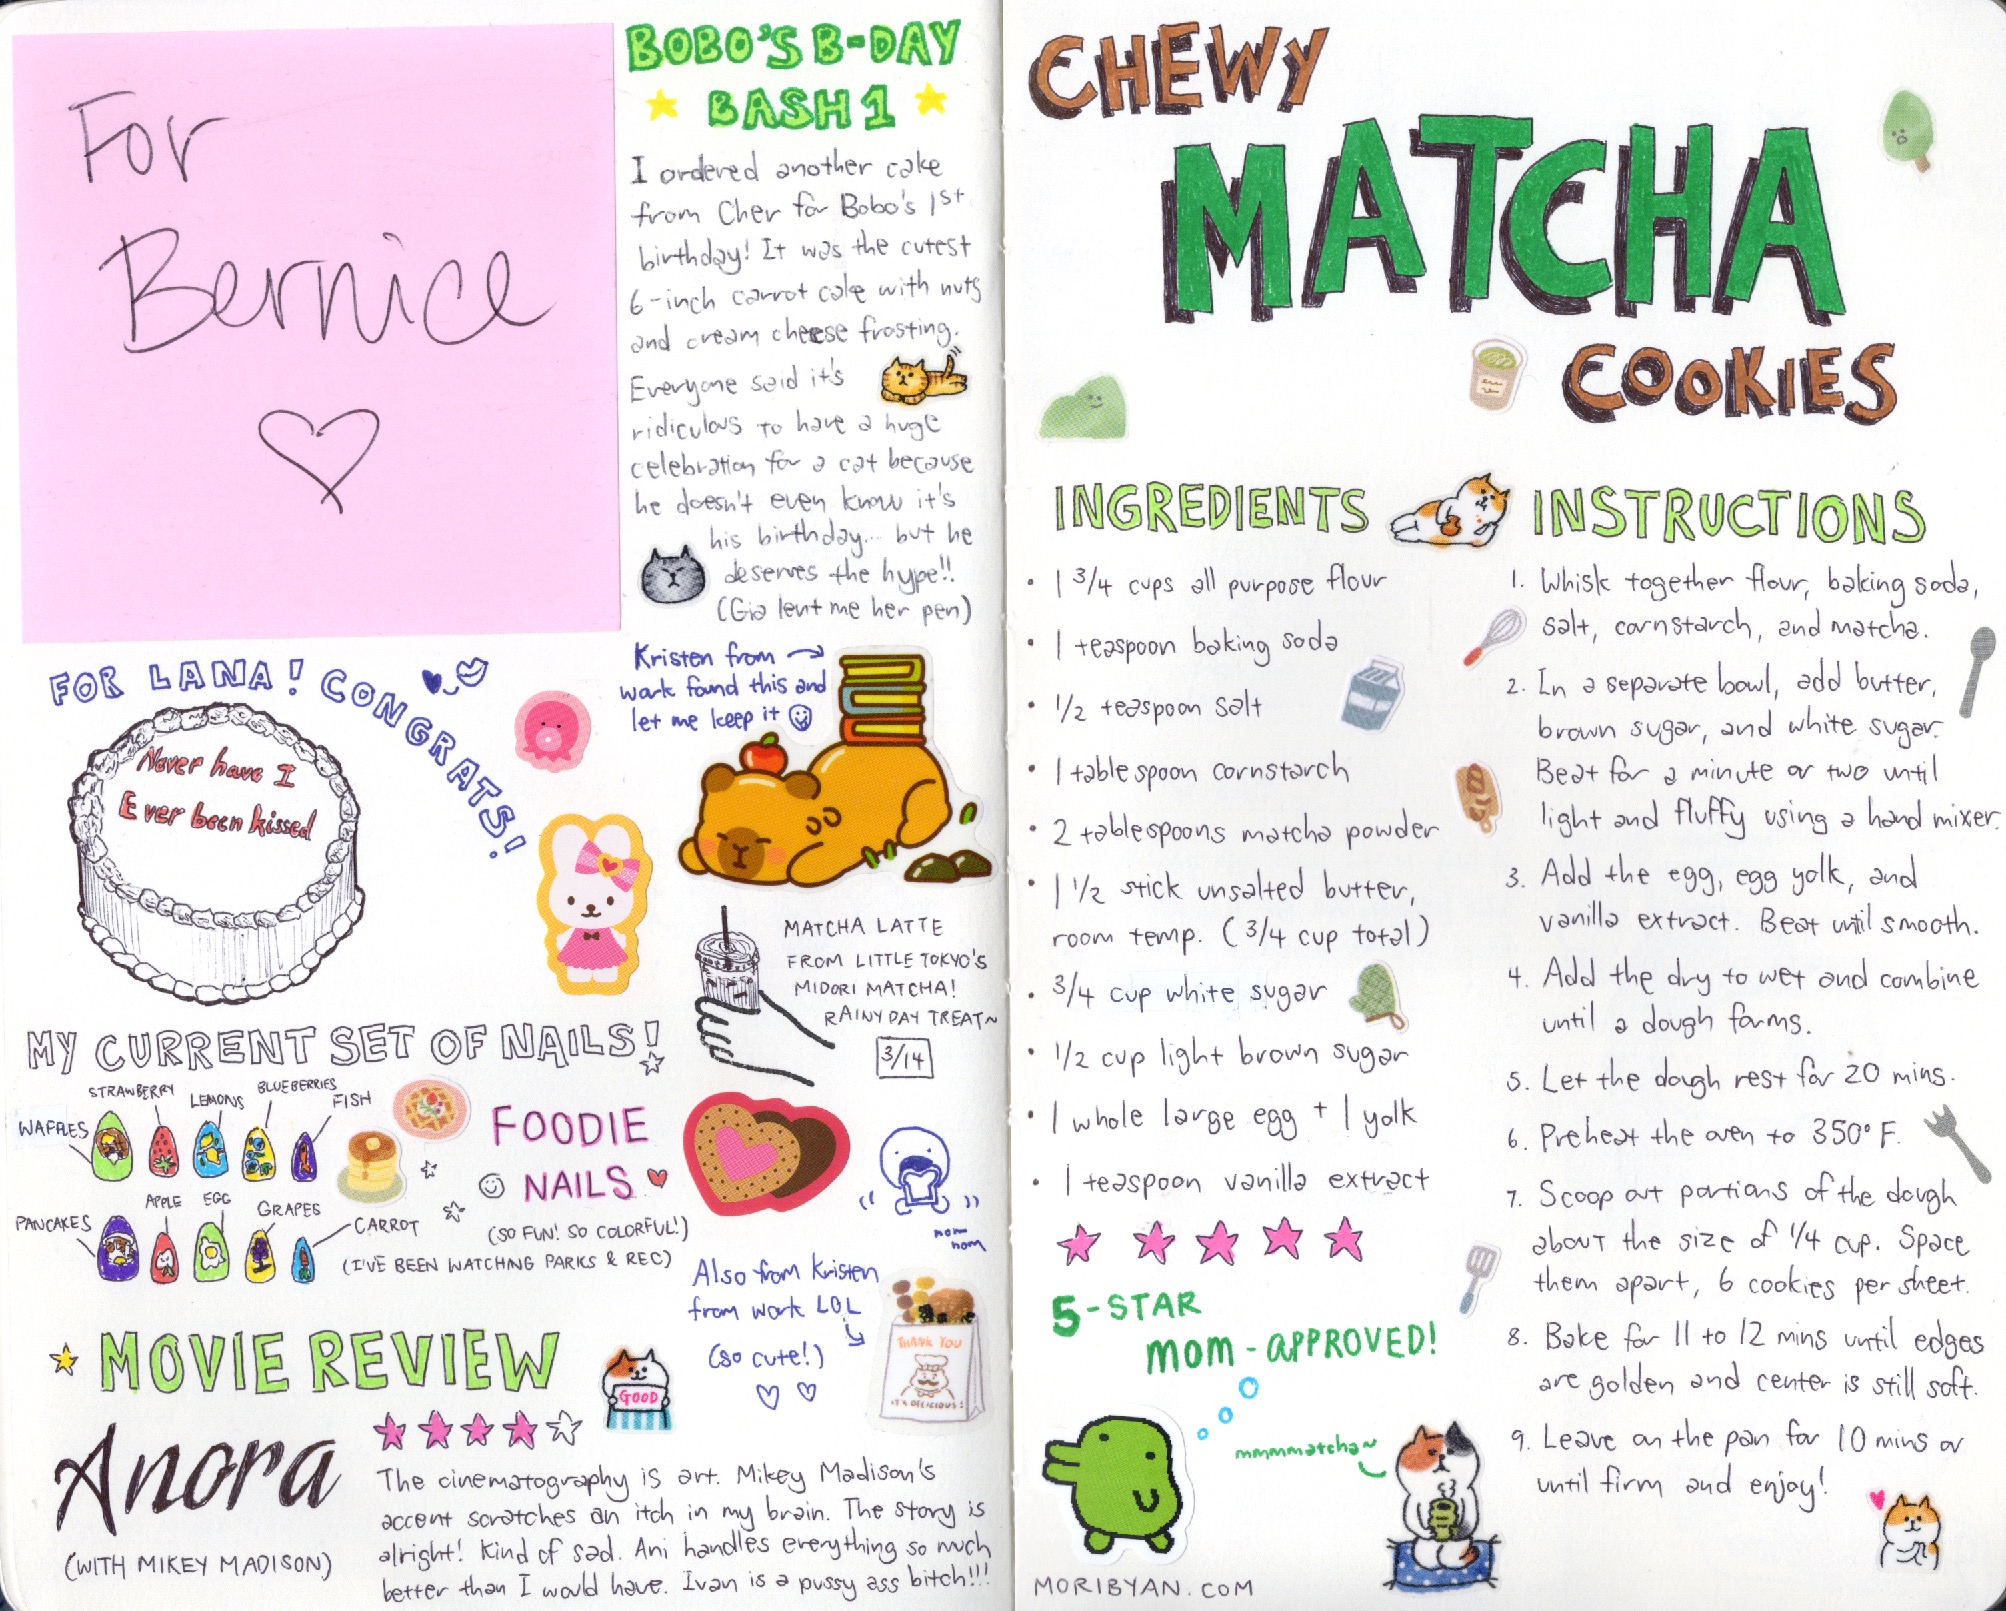 For
Bernice
BOBO'S B-DAY
BASH 1
I ordered another cake
from Cher for Bobo's 1st
birthday! It was the cutest
6-inch carrot cake with nuts
and cream cheese frosting.
Everyone said it's
ridiculous to have a huge
celebration for a cat because
he doesn't even know it's
his birthday... but he
deserves the hype!!
(Gia lent me her pen)
FOR LANA! CONGRATS!
Never have I
Ever been kissed
Kristen from
work found this and
let me keep it
MATCHA LATTE
FROM LITTLE TOKYO'S
MIDORI MATCHA!
RAINY DAY TREAT~
3/14
MY CURRENT SET OF NAILS!
WAFFLES
STRAWBERRY
LEMONS
BLUEBERRIES
FISH
PANCAKES
APPLE
EGG
GRAPES
CARROT
FOODIE
NAILS
(SO FUN! SO COLORFUL!)
(I'VE BEEN WATCHNG PARKS & REC)
nom
nom
Also from Kristen
from work LOL
(so cute!)
THANK YOU
IT'S DELICIOUS!
MOVIE REVIEW
GOOD
Anora
(WITH MIKEY MADISON)
The cinematography is art. Mikey Madison's
accent scratches an itch in my brain. The story is
alright! Kind of sad. Ani handles everything so much
better than I would have. Ivan is a pussy ass bitch!!!
CHEWY
MATCHA
COOKIES
INGREDIENTS
• 1 3/4 cups all purpose flour
• 1 teaspoon baking soda
• 1/2 teaspoon salt
• 1 tablespoon cornstarch
• 2 tablespoons matcha powder
• 1 1/2 stick unsalted butter,
room temp. (3/4 cup total)
• 3/4 cup white sugar
• 1/2 cup light brown sugar
• 1 whole large egg + 1 yolk
• 1 teaspoon vanilla extract
5-STAR
MOM-APPROVED!
mmmmatcha~
MORIBYAN.COM
INSTRUCTIONS
1. Whisk together flour, baking soda,
salt, cornstarch, and matcha.
2. In a separate bowl, add butter,
brown sugar, and white sugar.
Beat for a minute or two until
light and fluffy using a hand mixer.
3. Add the egg, egg yolk, and
vanilla extract. Beat until smooth.
4. Add the dry to wet and combine
until a dough forms.
5. Let the dough rest for 20 mins.
6. Preheat the oven to 350° F.
7. Scoop out portions of the dough
about the size of 1/4 cup. Space
them apart, 6 cookies per sheet.
8. Bake for 11 to 12 mins until edges
are golden and center is still soft.
9. Leave on the pan for 10 mins or
until firm and enjoy!